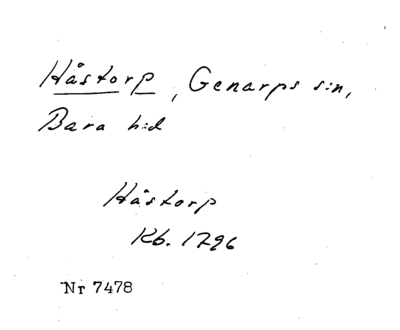 Håstorp, Genarps s:n,
Bara h:d
Håstorp
Kb. 1796
Nr 7478